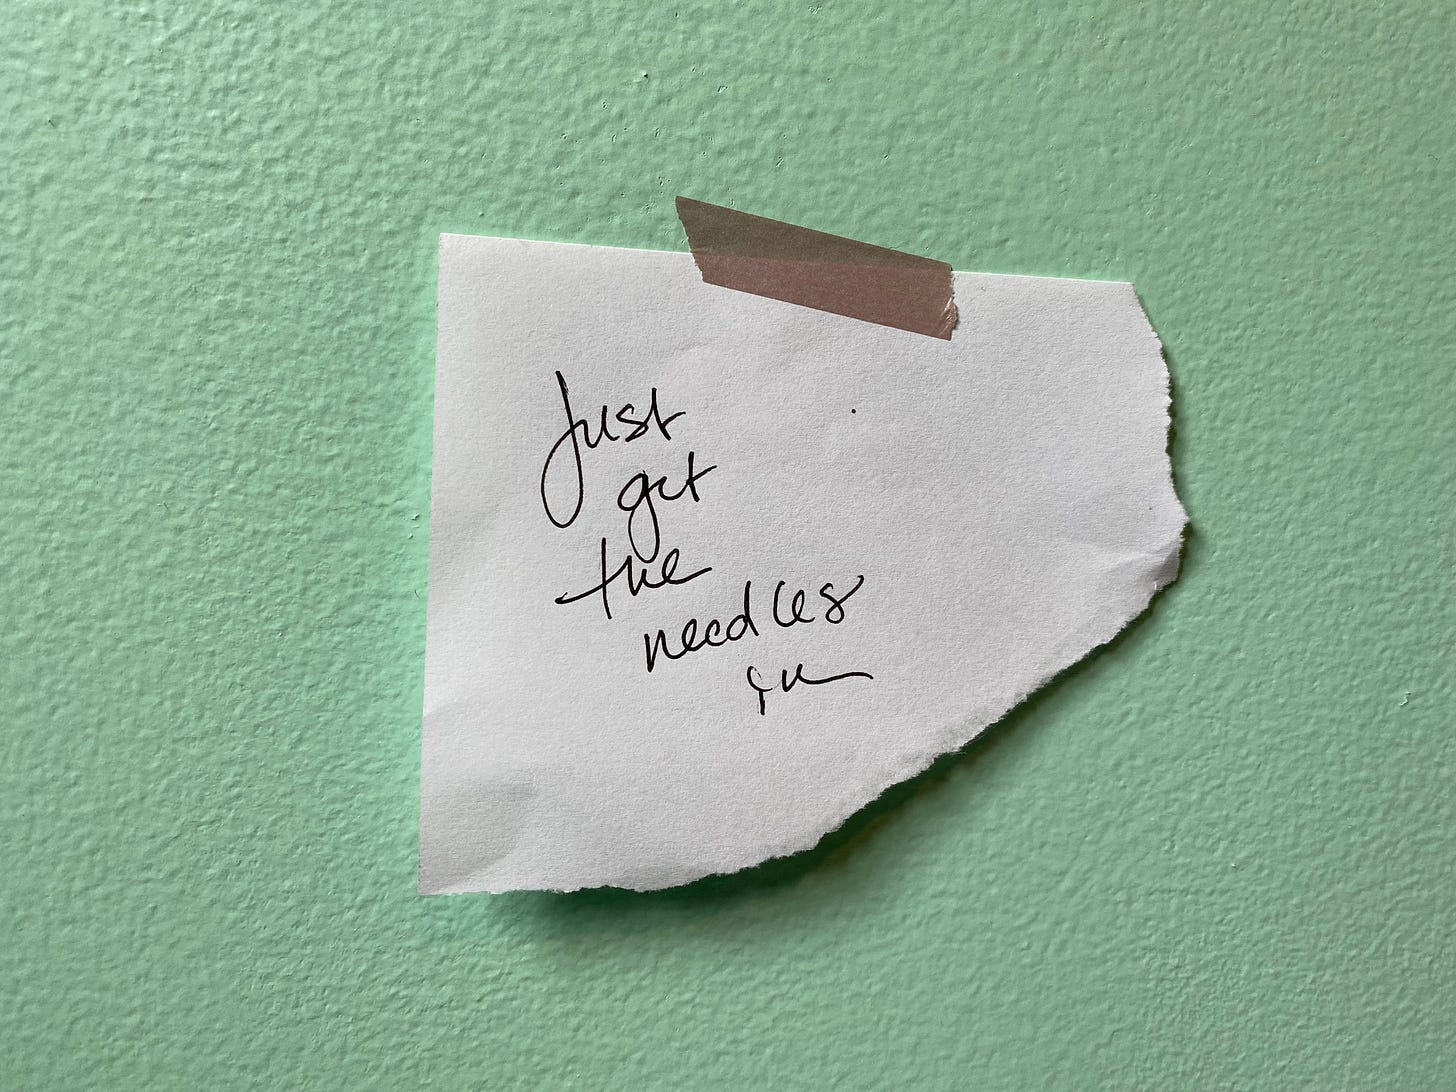 Just
get
the
needles
in